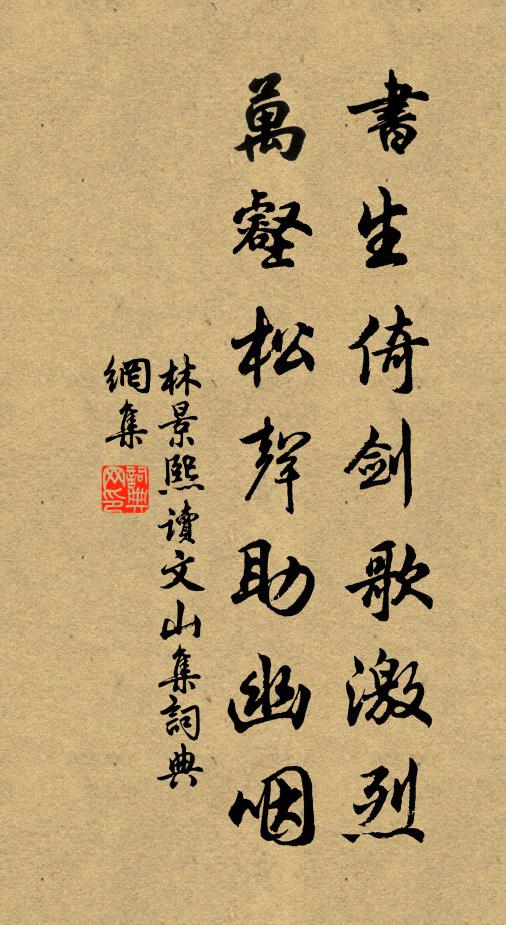 書生倚劍歌激烈
萬壑松聲助幽咽
林景熙讀文山集詞典
網集
詞典网印